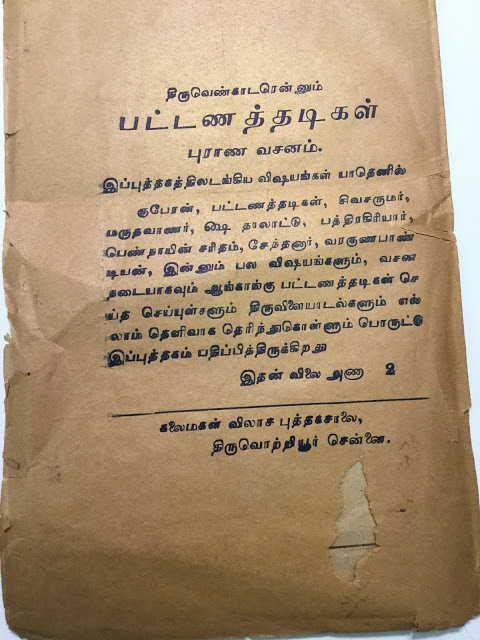 திருவெண்காடரென்னும்
பட்டணத்தடிகள்
புராண வசனம்.
இப்புத்தகத்திலடங்கிய விஷயங்கள் யாதெனில்
குபேரன், பட்டணத்தடிகள், சிவசருமர்,
மருதவாணர், ஷை தாலாட்டு, பத்திரகிரியார்,
பெண்நாயின் சரிதம், சேந்தனார், வரகுணபாண்
டியன், இன்னும் பல விஷயங்களும், வசன
நடையாகவும் ஆங்காங்கு பட்டணத்தடிகள் செ
ய்த செய்யுள்களும் திருவிளையாடல்களும் எல்
லாம் தெளிவாக தெரிந்துகொள்ளும் பொருட்டு
இப்புத்தகம் பதிப்பித்திருக்கிறது
இதன் விலை அணா 2
கலைமகள் விலாச புத்தகசாலை,
திருவொற்றியூர் சென்னை.